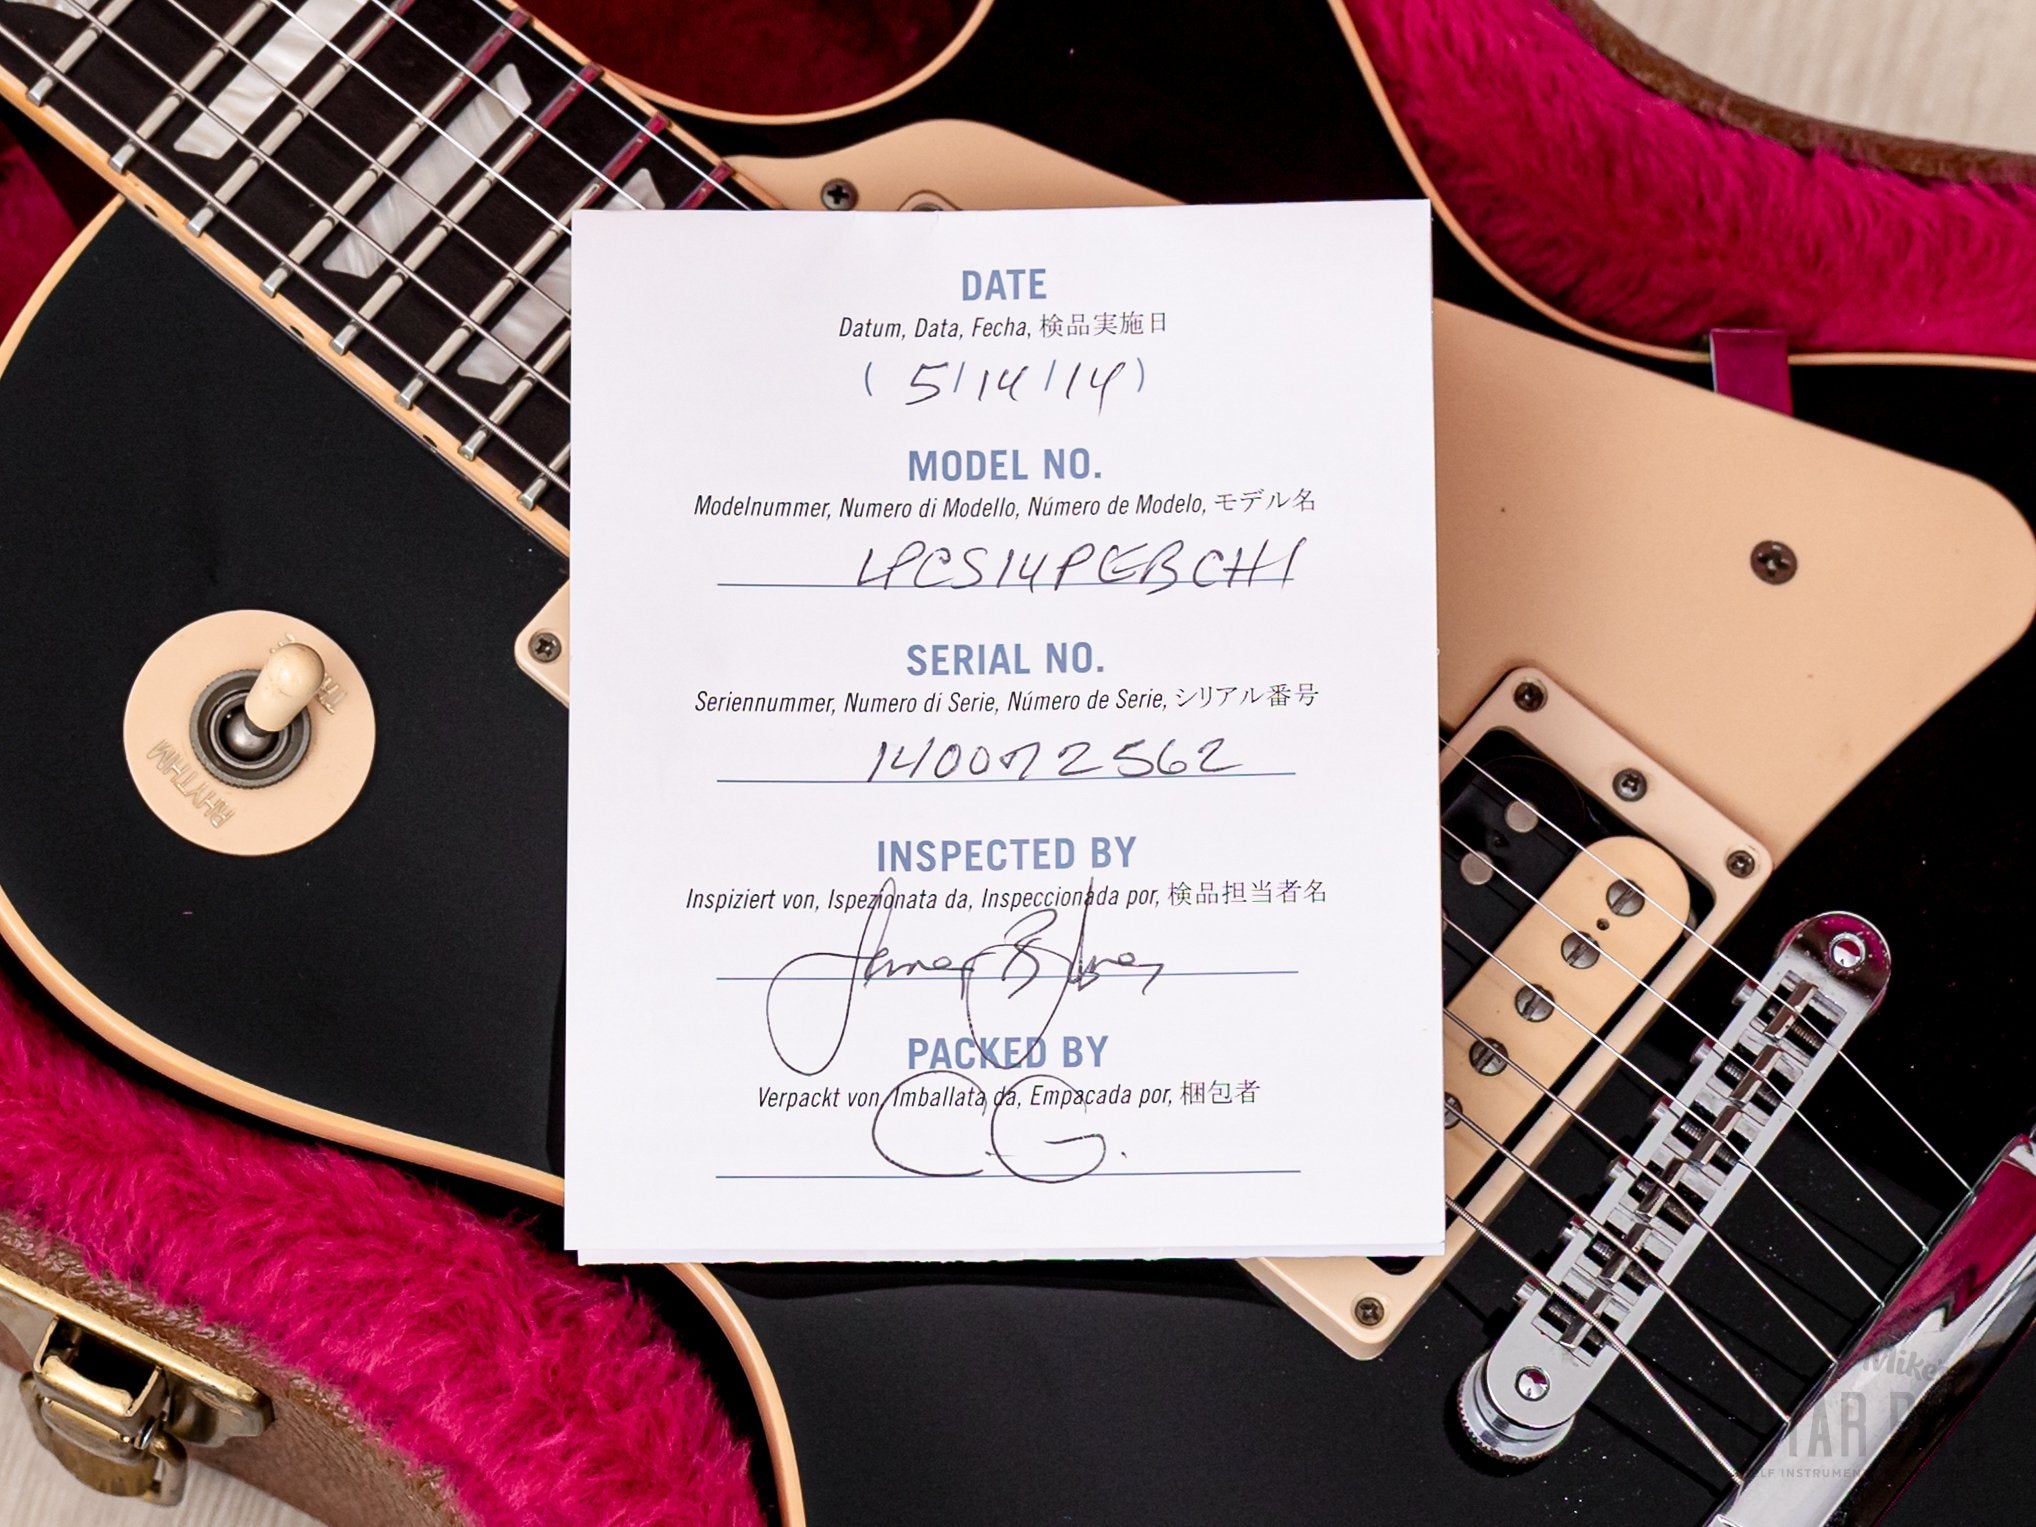 DATE
Datum, Data, Fecha, 検品実施日
( 5/14/14)
MODEL NO.
Modelnummer, Numero di Modello, Número de Modelo, モデル名
LPCS14PEBCH1
SERIAL NO.
Seriennummer, Numero di Serie, Número de Serie, シリアル番号
140072562
INSPECTED BY
Inspiziert von, Ispezionata da, Inspeccionada por, 検品担当者名
PACKED BY
Verpackt von, Imballata da, Empacada por, 梱包者
C.G.
RHYTHM
Mike's